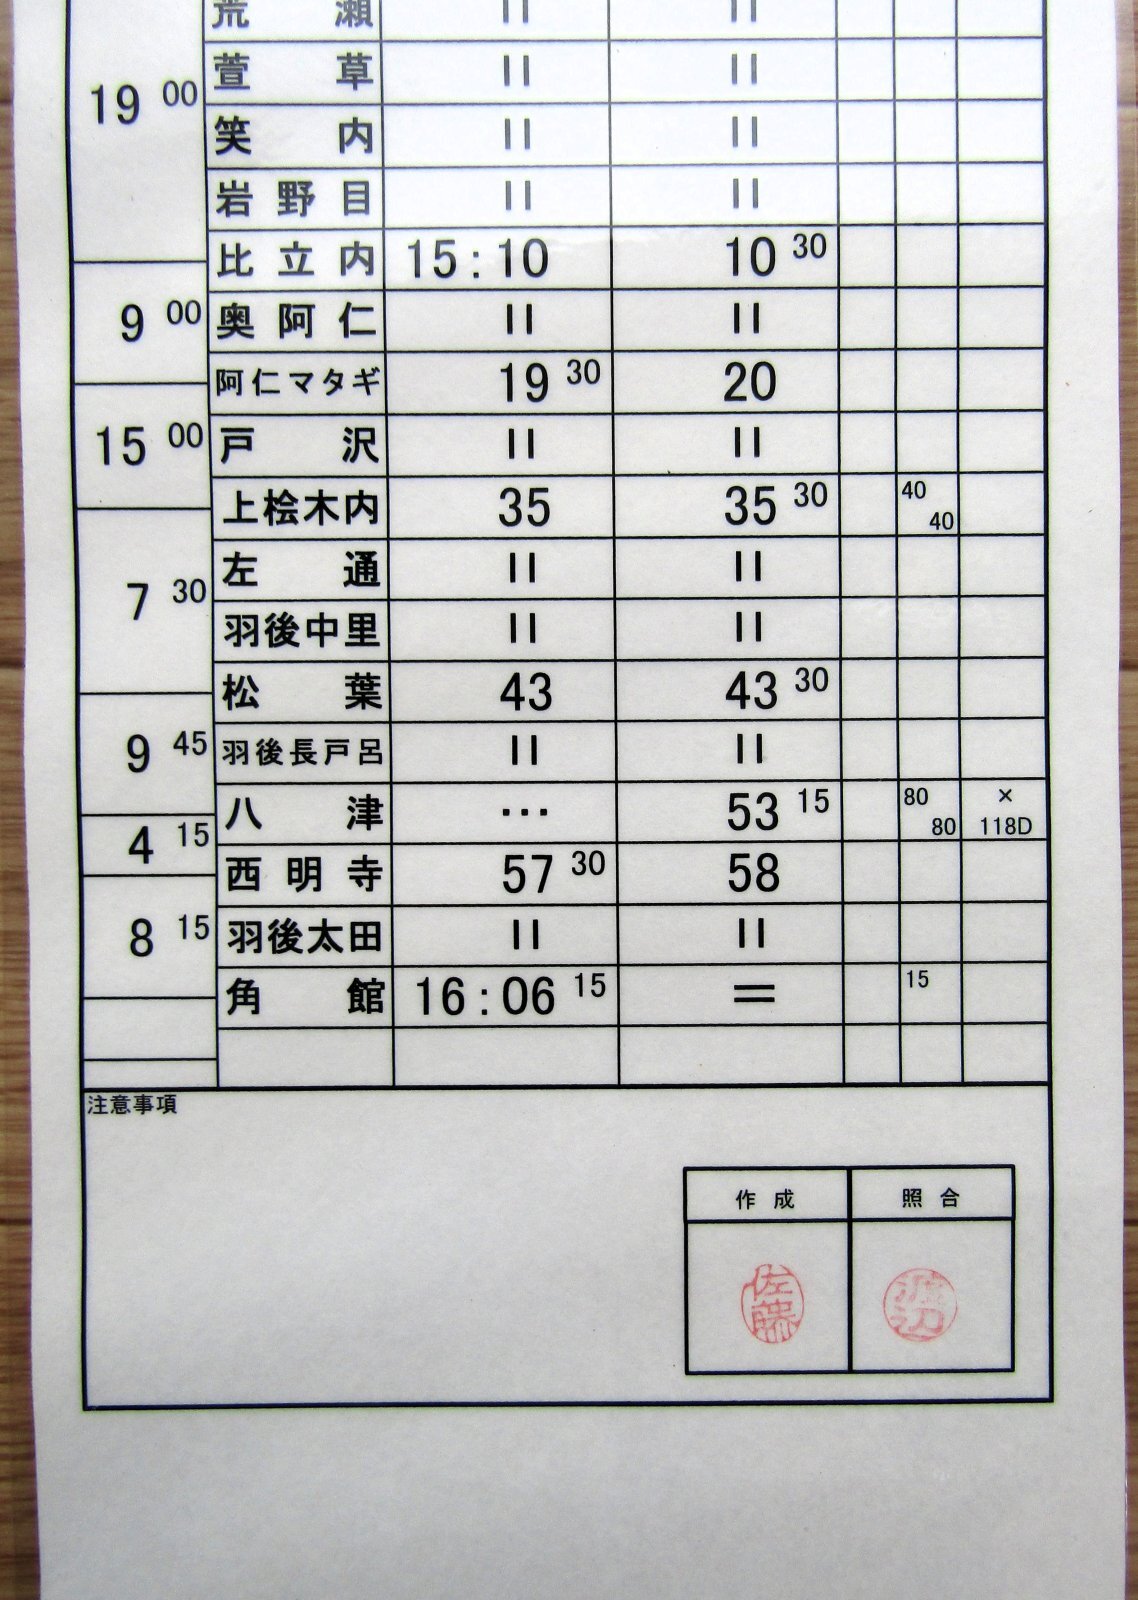 荒瀬 || ||
19 00 萱草 || ||
笑内 || ||
岩野目 || ||
比立内 15:10 10 30
9 00 奥阿仁 || ||
阿仁マタギ 19 30 20
15 00 戸沢 || ||
上桧木内 35 35 30 40 40
左通 || ||
7 30 羽後中里 || ||
松葉 43 43 30
9 45 羽後長戸呂 || ||
八津 … 53 15 80 80 × 118D
4 15 西明寺 57 30 58
8 15 羽後太田 || ||
角館 16:06 15 = 15
注意事項
作成 照合
佐藤 渡辺